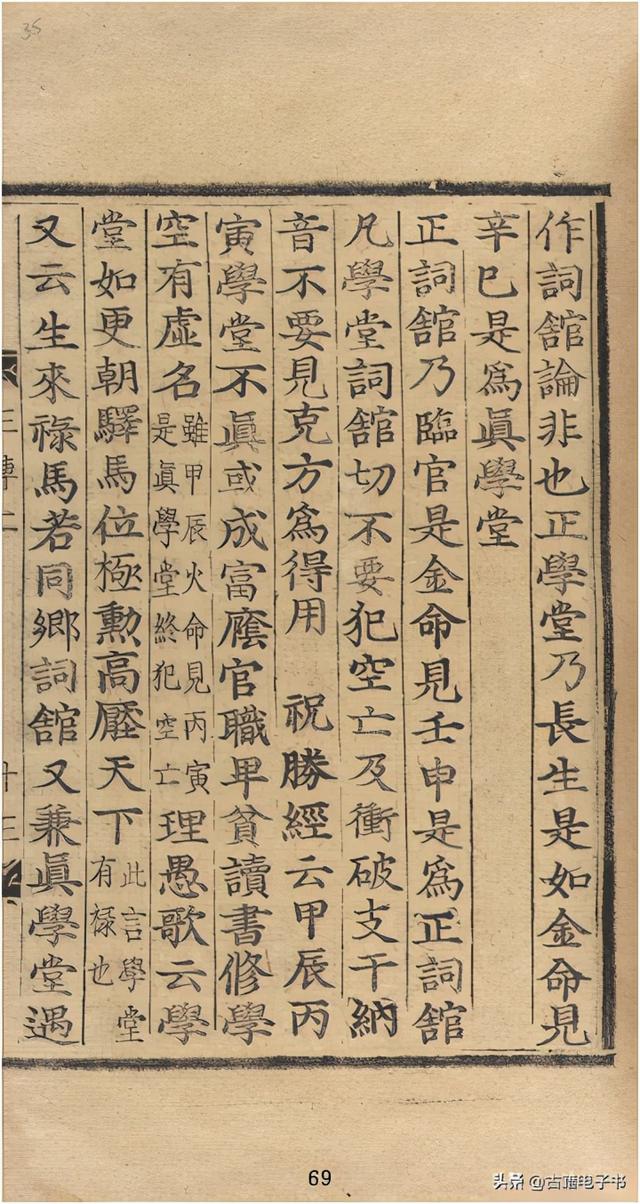 35
作詞舘論非也正學堂乃長生是如金命見
辛巳是爲眞學堂
正詞舘乃臨官是金命見壬申是爲正詞舘
凡學堂詞舘切不要犯空亡及衝破支干納
音不要見克方爲得用 祝勝經云甲辰丙
寅學堂不眞或成富廕官職卑貧讀書修學
空有虛名雖甲辰火命見丙寅是眞學堂終犯空亡理愚歌云學
堂如更朝驛馬位極勳高壓天下此言學堂有祿也
又云生來祿馬若同鄉詞舘又兼眞學堂遇
十三
69
头条 @古猫电子书